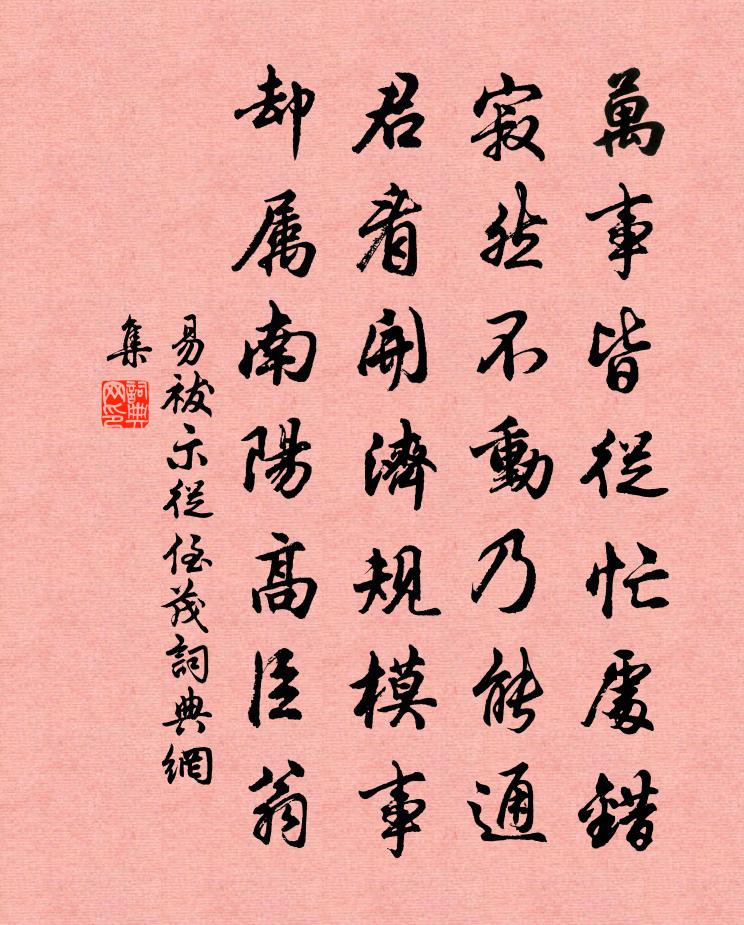 萬事皆從忙處錯
寂然不動乃能通
君看開濟規模事
却属南陽高臣翁
易祓示從侄茂詞典網
集
詞典網印